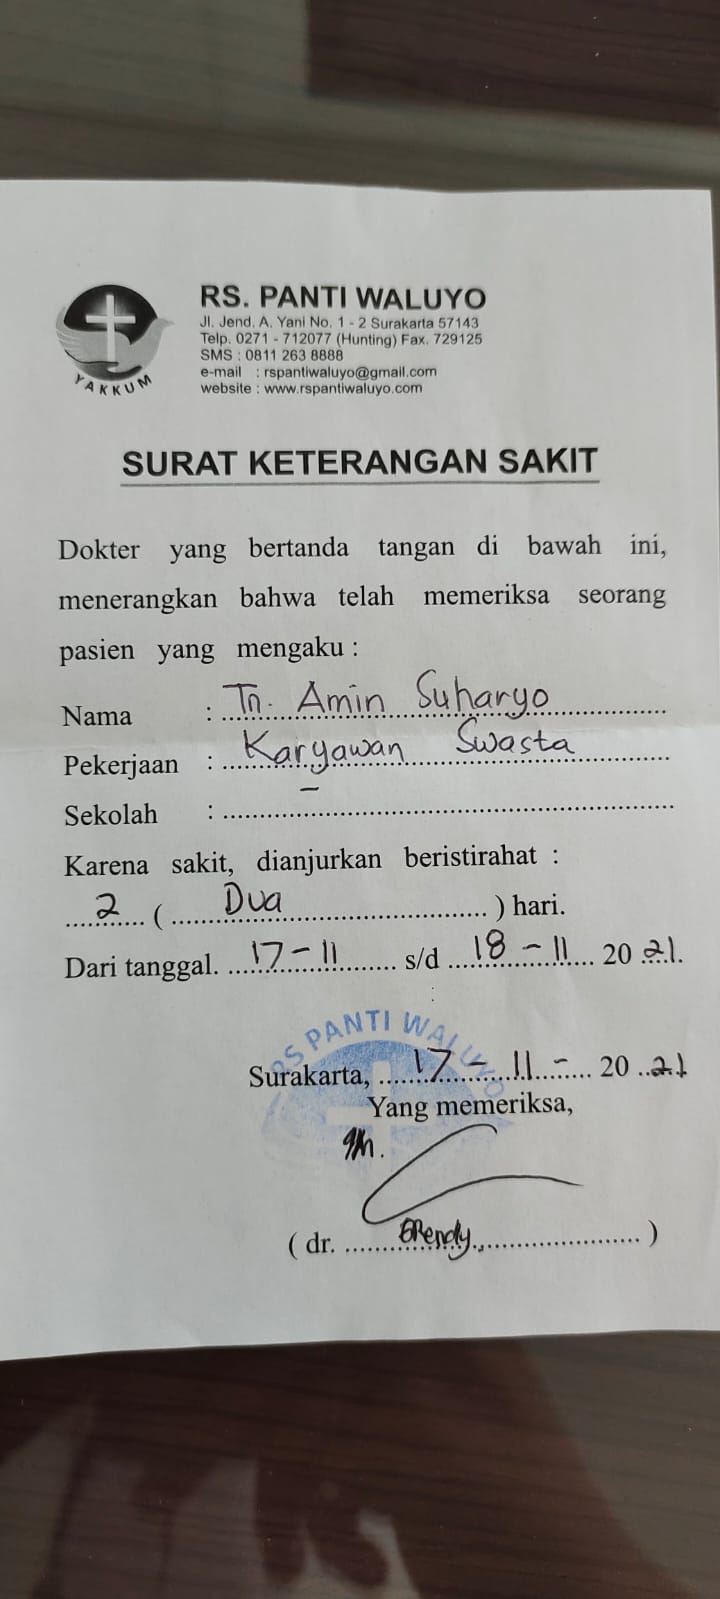 RS. PANTI WALUYO
Jl. Jend. A. Yani No. 1 - 2 Surakarta 57143
Telp. 0271 - 712077 (Hunting) Fax. 729125
SMS : 0811 263 8888
e-mail : rspantiwaluyo@gmail.com
website : www.rspantiwaluyo.com
YAKKUM
SURAT KETERANGAN SAKIT
Dokter yang bertanda tangan di bawah ini,
menerangkan bahwa telah memeriksa seorang
pasien yang mengaku :
Nama : Tn. Amin Suharyo
Pekerjaan : Karyawan Swasta
Sekolah : -
Karena sakit, dianjurkan beristirahat :
2 ( Dua ) hari.
Dari tanggal. 17-11 s/d 18-11 20 21.
RS PANTI WALUYO
Surakarta, 17-11- 20 21
Yang memeriksa,
( dr. )